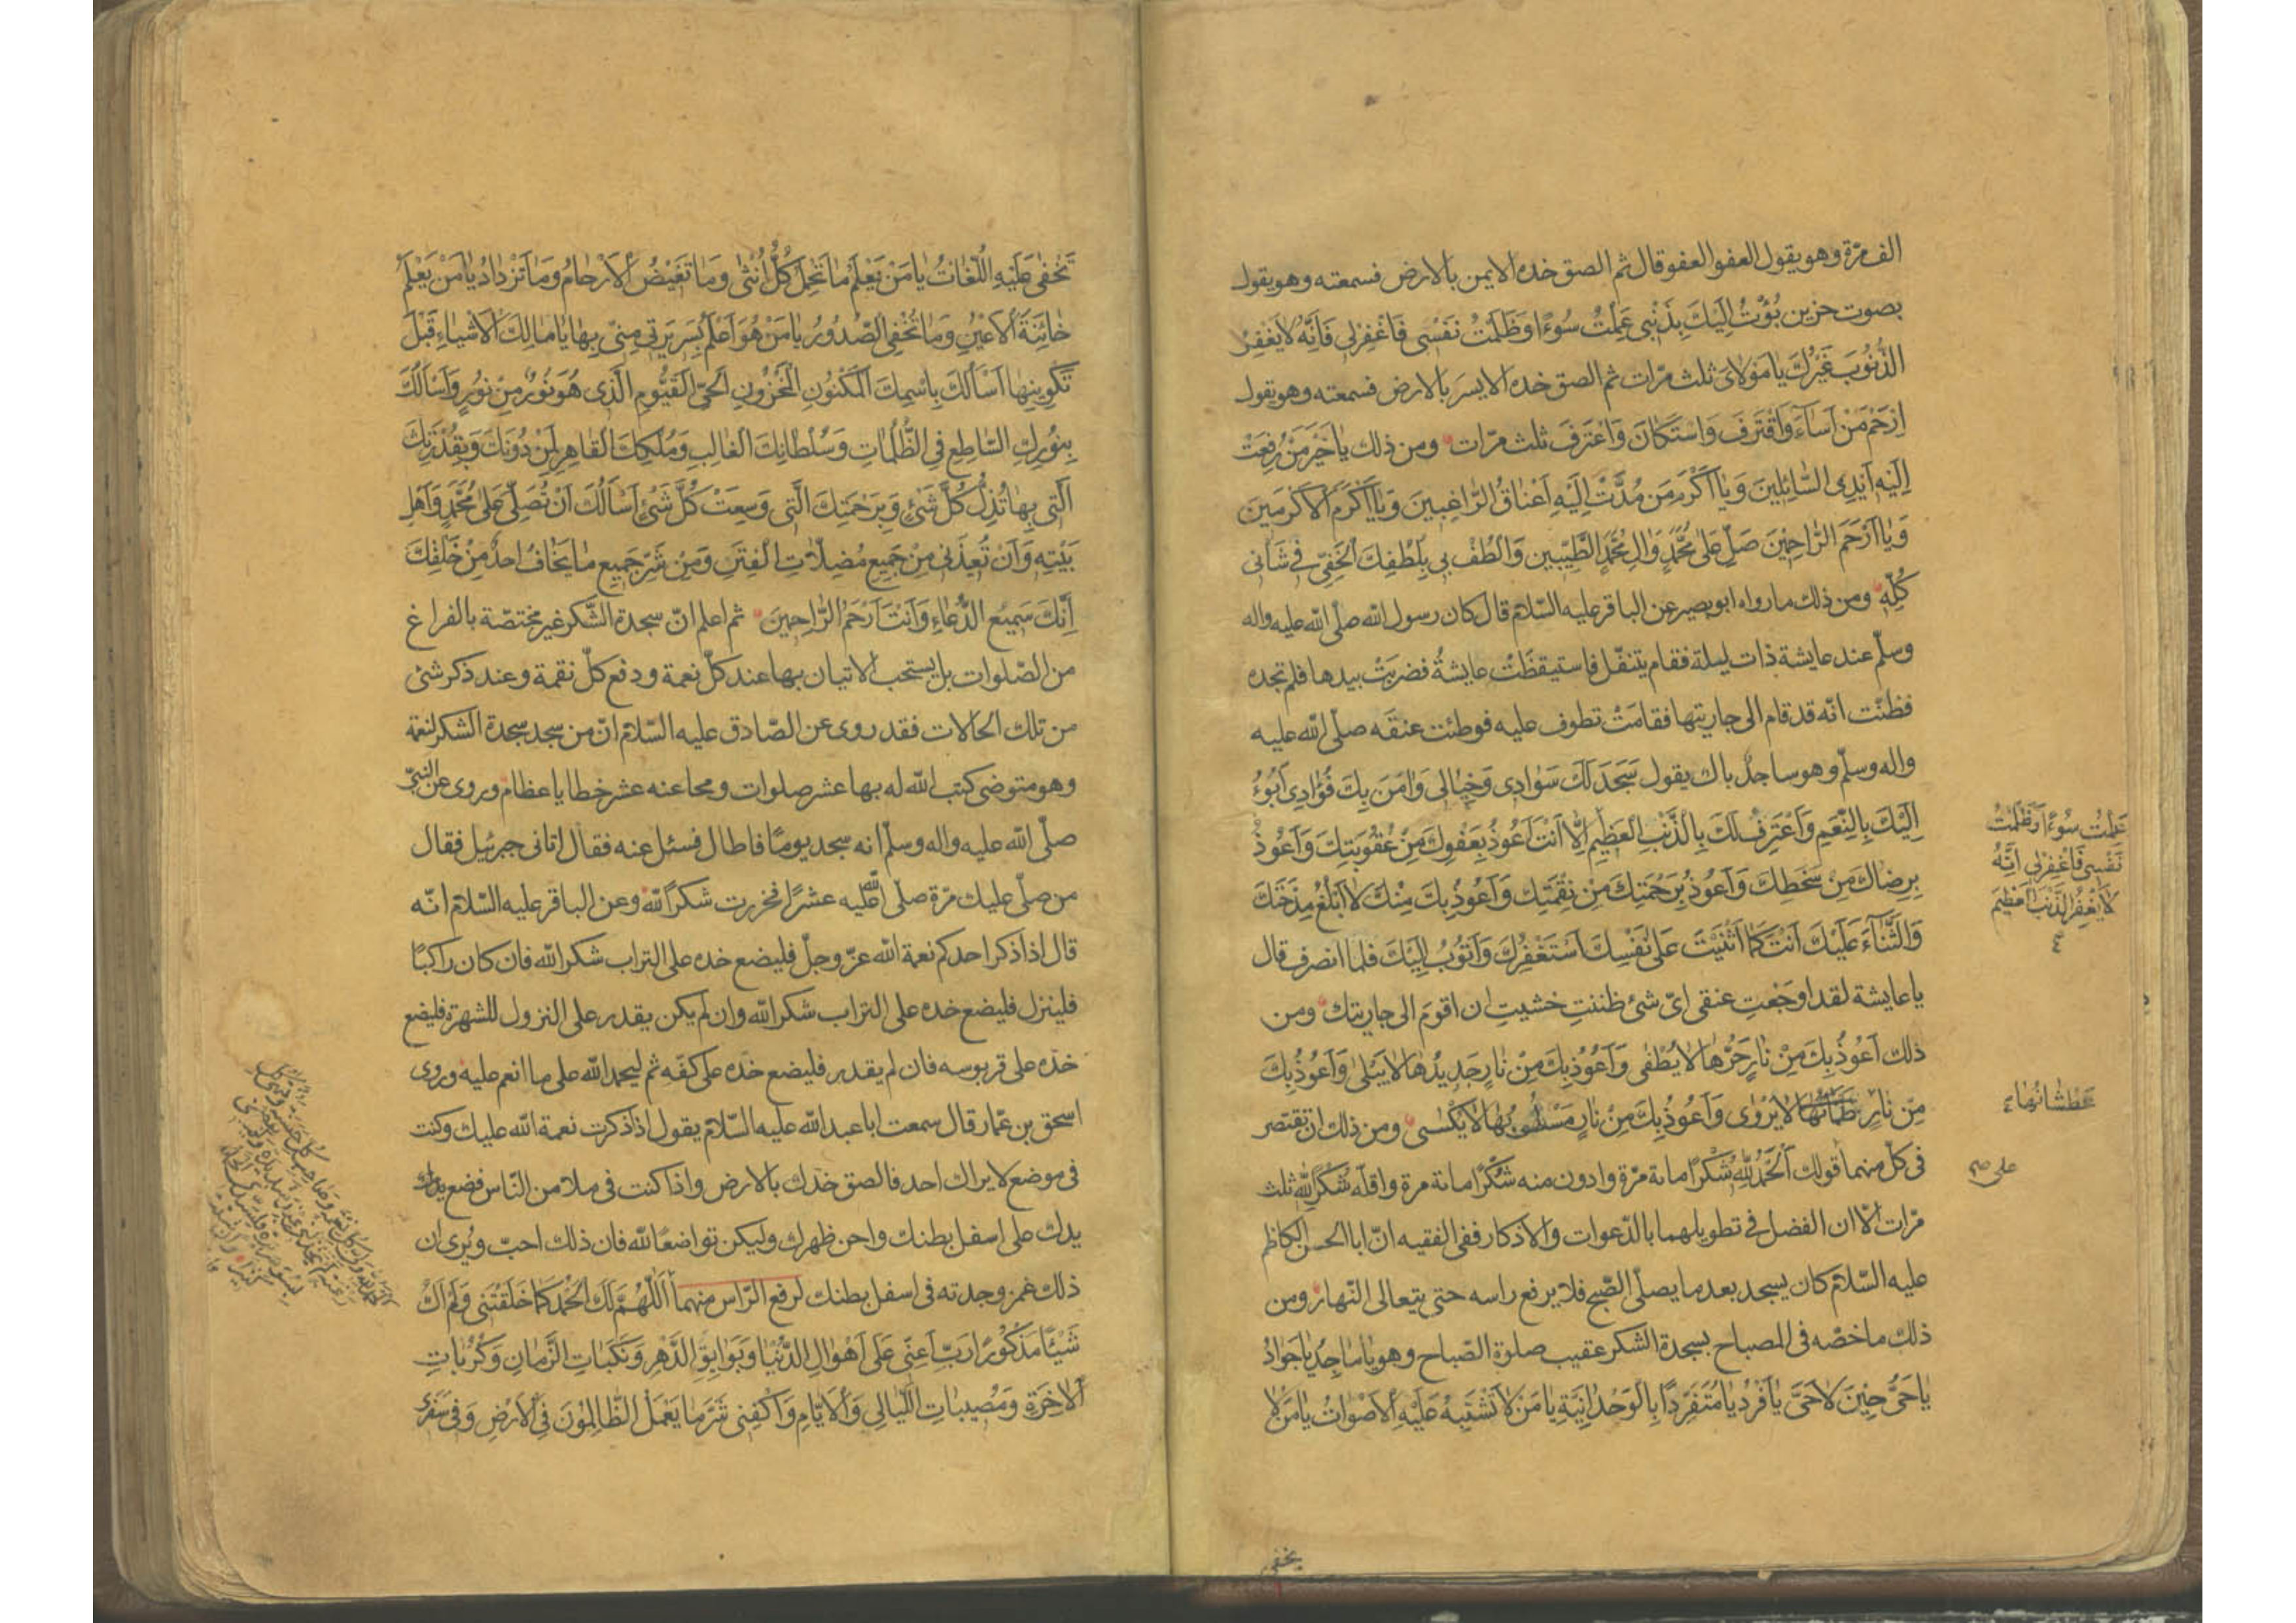 الف مرّة وهو يقول العفو العفو قال ثم الصق خده الايمن بالارض فسمعته وهو يقول
بصوت حزين بُؤْتُ اِلَيْكَ بِذَنْبي عَمِلْتُ سُوءًا وَظَلَمْتُ نَفْسي فَاغْفِرْلي فَاِنَّهُ لا يَغْفِرُ
الذُّنُوبَ غَيْرُكَ يا مَوْلايَ ثلث مرّات ثم الصق خده الايسر بالارض فسمعته وهو يقول
اِرْحَمْ مَنْ اَسآءَ وَاقْتَرَفَ وَاسْتَكانَ وَاعْتَرَفَ ثلث مرّات ومن ذلك يا خَيْرَ مَنْ رُفِعَتْ
اِلَيْهِ اَيْدِى السّائِلينَ وَيا اَكْرَمَ مَن مُدَّتْ اِلَيْهِ اَعْناقُ الرّاغِبينَ وَيا اَكْرَمَ الْاَكْرَمينَ
وَيا اَرْحَمَ الرّاحِمينَ صَلِّ عَلى مُحَمَّدٍ وَالِ مُحَمَّدٍ الطَّيِّبين وَالْطُفْ بي بِلُطْفِكَ الْخَفِيِّ في شَأني
كُلِّهِ ومن ذلك مارواه ابو بصير عن الباقر عليه السّلام قال كان رسول الله صلّى الله عليه واله
وسلّم عند عايشة ذات ليلة فقام يتنفّل فاستيقظَتْ عايشةُ فضربَتْ بيدها فلم تجده
فظنّت انّه قد قام الى جاريتها فقامَتْ تطوف عليه فوطئت عنقَه صلّى الله عليه
واله وسلّم وهو ساجدٌ باك يقول سَجَدَ لَكَ سَوادى وَخَيالى وَامَنَ بِكَ فُؤادى اَبُوءُ
اِلَيْكَ بِالنِّعَمِ وَاَعْتَرِفُ لَكَ بِالذَّنْبِ الْعَظيمِ اِلّا اَنْتَ اَعُوذُ بِعَفْوِكَ مِنْ عُقُوبَتِكَ وَاَعُوذُ
بِرِضاكَ مِنْ سَخَطِكَ وَاَعُوذُ بِرَحْمَتِكَ مِنْ نِقْمَتِكَ وَاَعُوذُ بِكَ مِنْكَ لا اَبْلُغُ مِدْحَتَكَ
وَالثَّنآءَ عَلَيْكَ اَنْتَ كَما اَثْنَيْتَ عَلى نَفْسِكَ اَسْتَغْفِرُكَ وَاَتُوبُ اِلَيْكَ فلما انصرف قال
يا عايشة لقد اوجَعْتِ عنقى اىّ شئ ظننتِ خشيتِ ان اقومَ الى جاريتك ومن
ذلك اَعُوذُ بِكَ مِنْ نارٍ حَرُّها لا يُطْفى وَاَعُوذُ بِكَ مِنْ نارٍ جَديدُها لا يَبْلى وَاَعُوذُ بِكَ
مِنْ نارٍ ظَمْآنُها لا يَرْوى وَاَعُوذُ بِكَ مِنْ نارٍ مَسْلُوبُها لا يُكْسى ومن ذلك ان تقتصر
فى كلّ منهما قولك اَلْحَمْدُ لِلّهِ شُكْرًا مائة مرّة وادون منه شُكْرًا مائة مرة واقلّه شُكْرًا لِلّهِ ثلث
مرّات الّا ان الفضل فى تطويلهما بالدّعوات والاذكار ففى الفقيه انّ ابا الحسن الكاظم
عليه السّلام كان يسجد بعد ما يصلّى الصّبح فلا يرفع راسه حتى يتعالى النّهار ومن
ذلك ما خصّه فى المصباح بسجدة الشكر عقيب صلوة الصّباح وهو يا ماجِدُ يا جَوادُ
يا حَىُّ حينَ لا حَىَّ يا فَرْدُ يا مُتَفَرِّدًا بِالْوَحْدانِيَّةِ يا مَنْ لا تَشْتَبِهُ عَلَيْهِ الْاَصْواتُ يا مَنْ لا
عَمِلْتُ سُوءًا وَظَلَمْتُ
نَفْسى فَاغْفِرْلى اِنَّهُ
لا يَغْفِرُ الذَّنْبَ الْعَظيمَ
عَطْشانُها
على
يخفى
تَخْفى عَلَيْهِ اللُّغاتُ يا مَنْ يَعْلَمُ ما تَحْمِلُ كُلُّ اُنْثى وَما تَغيضُ الْاَرْحامُ وَما تَزْدادُ يا مَنْ يَعْلَمُ
خائِنَةَ الْاَعْيُنِ وَما تُخْفِى الصُّدُورُ يا مَنْ هُوَ اَعْلَمُ بِسَريرَتى مِنّى بِها يا مالِكَ الْاَشْياءِ قَبْلَ
تَكْوينِها اَسْاَلُكَ بِاسْمِكَ الْمَكْنُونِ الْمَخْزُونِ الْحَىِّ الْقَيُّومِ الَّذى هُوَ نُورٌ مِنْ نُورٍ وَاَسْاَلُكَ
بِنُورِكَ السّاطِعِ فِى الظُّلُماتِ وَسُلْطانِكَ الْغالِبِ وَمُلْكِكَ الْقاهِرِ لِمَنْ دُونَكَ وَبِقُدْرَتِكَ
الَّتى بِها تُذِلُّ كُلَّ شَىْءٍ وَبِرَحْمَتِكَ الَّتى وَسِعَتْ كُلَّ شَىْءٍ اَسْاَلُكَ اَنْ تُصَلِّىَ عَلى مُحَمَّدٍ وَاَهْلِ
بَيْتِهِ وَاَنْ تُعيذَنى مِنْ جَميعِ مُضِلّاتِ الْفِتَنِ وَمِنْ شَرِّ جَميعِ ما يَخافُ اَحَدٌ مِنْ خَلْقِكَ
اِنَّكَ سَميعُ الدُّعاءِ وَاَنْتَ اَرْحَمُ الرّاحِمينَ ثم اعلم انّ سجدة الشّكر غير مختصّة بالفراغ
من الصّلوات بل يستحب الاتيان بها عند كلّ نعمة ودفع كلّ نقمة وعند ذكر شئ
من تلك الحالات فقد روى عن الصّادق عليه السّلام انّ من سجد سجدة الشكر لنعمة
وهو متوضى كتب الله له بها عشر صلوات ومحا عنه عشر خطايا عظام وروى عن النبىّ
صلّى الله عليه واله وسلّم انه سجد يومًا فاطال فسئل عنه فقال اتانى جبرئيل فقال
من صلّى عليك مرّة صلّى الله عليه عشرًا فخررت شكرًا لله وعن الباقر عليه السّلام انّه
قال اذا ذكر احدكم نعمة الله عزّ وجلّ فليضع خده على التراب شكر الله فان كان راكبًا
فلينزل فليضع خده على التراب شكر الله وان لم يكن يقدر على النزول للشهرة فليضع
خدّه على قربوسه فان لم يقدر فليضع خدّه على كفّه ثم ليحمد الله على ما انعم عليه وروى
اسحق بن عمّار قال سمعت ابا عبد الله عليه السّلام يقول اذا ذكرت نعمة الله عليك وكنت
فى موضع لا يراك احد فالصق خدّك بالارض واذا كنت فى ملا من النّاس فضع
يدك على اسفل بطنك واحن ظهرك وليكن تواضعًا لله فان ذلك احبّ ويُرى ان
ذلك غمز وجدته فى اسفل بطنك لرفع الرّاس منهما اَللّهُمَّ لَكَ الْحَمْدُ كَما خَلَقْتَنى وَلَمْ اَكُ
شَيْئًا مَذْكُورًا رَبِّ اَعِنّى عَلى اَهْوالِ الدُّنْيا وَبَوائِقِ الدَّهْرِ وَنَكَباتِ الزَّمانِ وَكُرُباتِ
الْاخِرَةِ وَمُصيباتِ اللَّيالى وَالْاَيّامِ وَاكْفِنى شَرَّ ما يَعْمَلُ الظّالِمُونَ فِى الْاَرْضِ وَفى سَفَرى